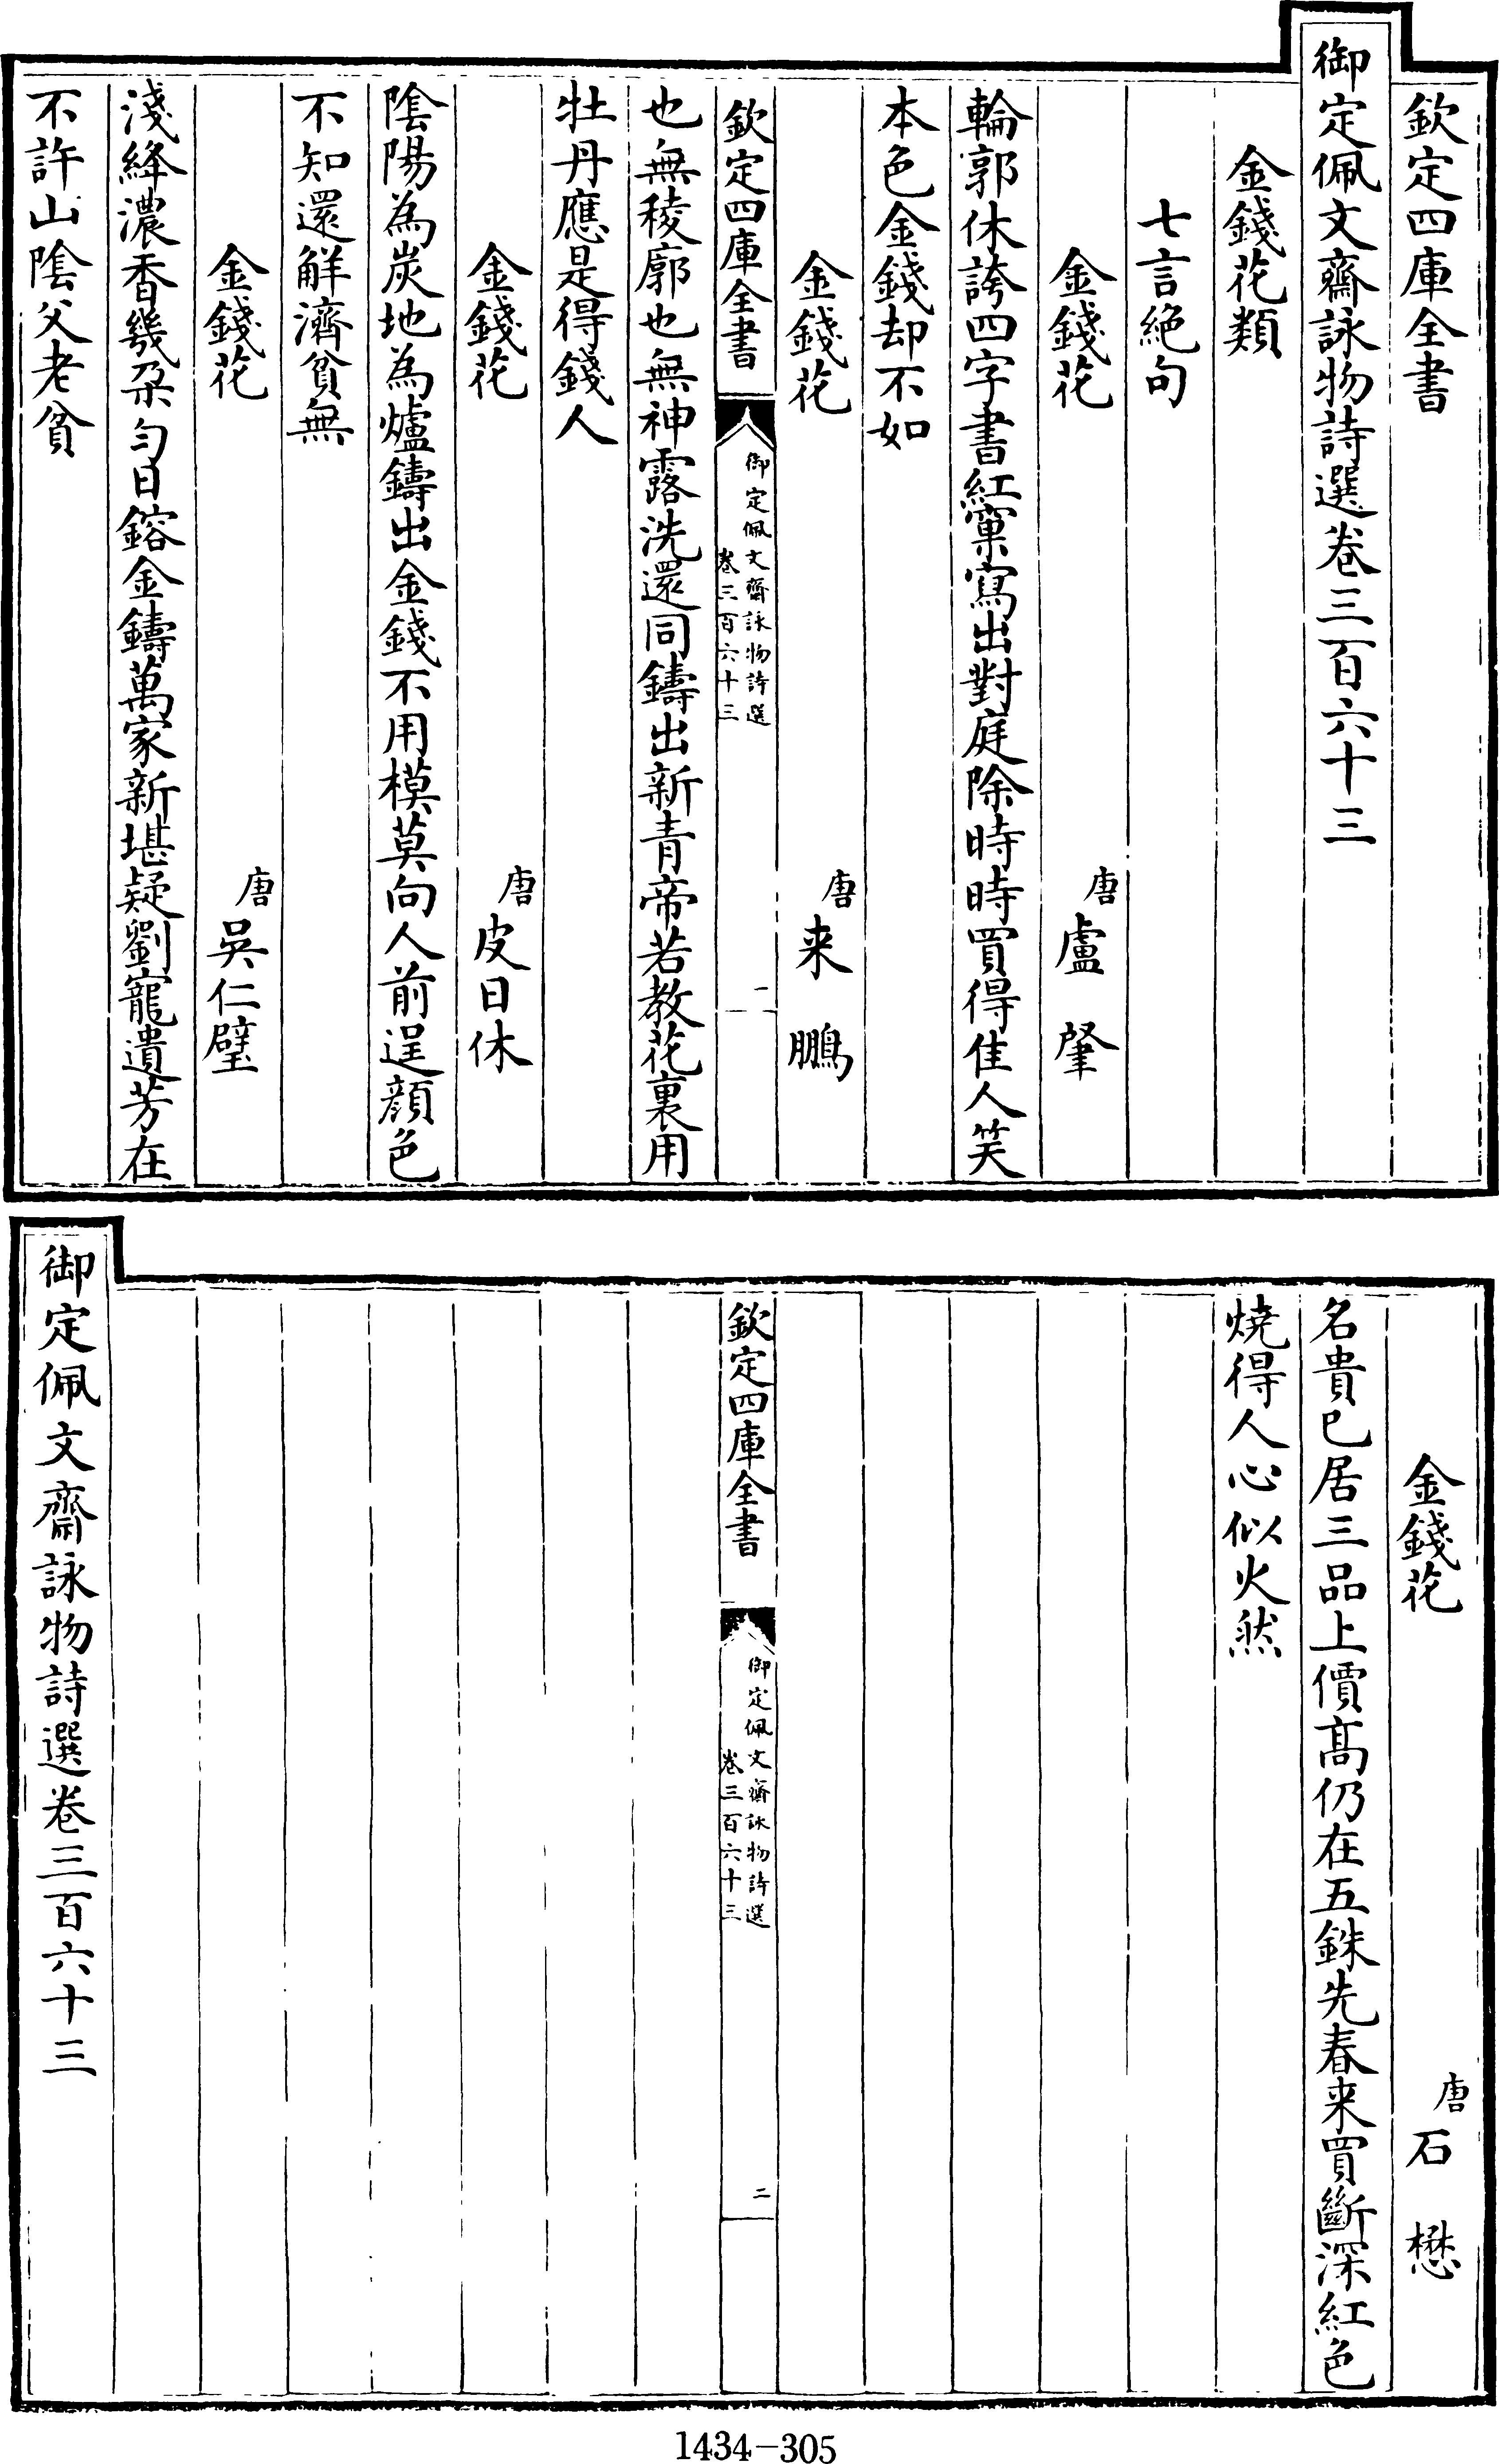 欽定四庫全書
御定佩文齋詠物詩選卷三百六十三
金錢花類
七言絶句
金錢花　唐盧肇
輪郭休誇四字書紅窠寫出對庭除時時買得佳人笑
本色金錢却不如
金錢花　唐来鵬
欽定四庫全書
御定佩文齋詠物詩選
卷三百六十三
一
也無稜廓也無神露洗還同鑄出新青帝若教花裏用
牡丹應是得錢人
金錢花　唐皮日休
隂陽為炭地為爐鑄出金錢不用模莫向人前逞顔色
不知還解濟貧無
金錢花　唐吳仁璧
淺絳濃香幾朶勻日鎔金鑄萬家新堪疑劉寵遺芳在
不許山隂父老貧
金錢花　唐石懋
名貴已居三品上價髙仍在五銖先春来買斷深紅色
燒得人心似火然
欽定四庫全書
御定佩文齋詠物詩選
卷三百六十三
二
御定佩文齋詠物詩選卷三百六十三
1434-305